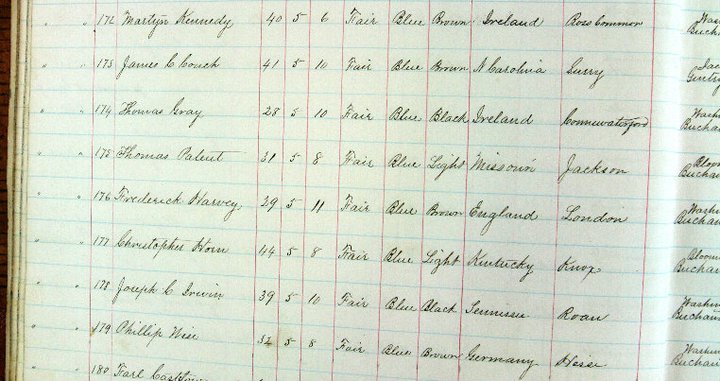 " " 172 Martyn Kennedy 40 5 6 Fair Blue Brown Ireland Ross Common Wash
Bucha
" " 173 James C Couch 41 5 10 Fair Blue Brown N Carolina Surry Jac
Gentry
" " 174 Thomas Gray 28 5 10 Fair Blue Black Ireland Washi
Buchan
" " 175 Thomas Patent 31 5 8 Fair Blue Light Missouri Jackson Bloom
Buchan
" " 176 Frederick Harvey 29 5 11 Fair Blue Brown England London Washin
Buchan
" " 177 Christopher Horn 44 5 8 Fair Blue Light Kentucky Knox Bloomi
Buchan
" " 178 Joseph C Irwin 39 5 10 Fair Blue Black Tennessee Roan Washin
Buchan
" " 179 Phillip Wise 32 5 8 Fair Blue Brown Germany Hesse Washin
Bucha
180 Earl